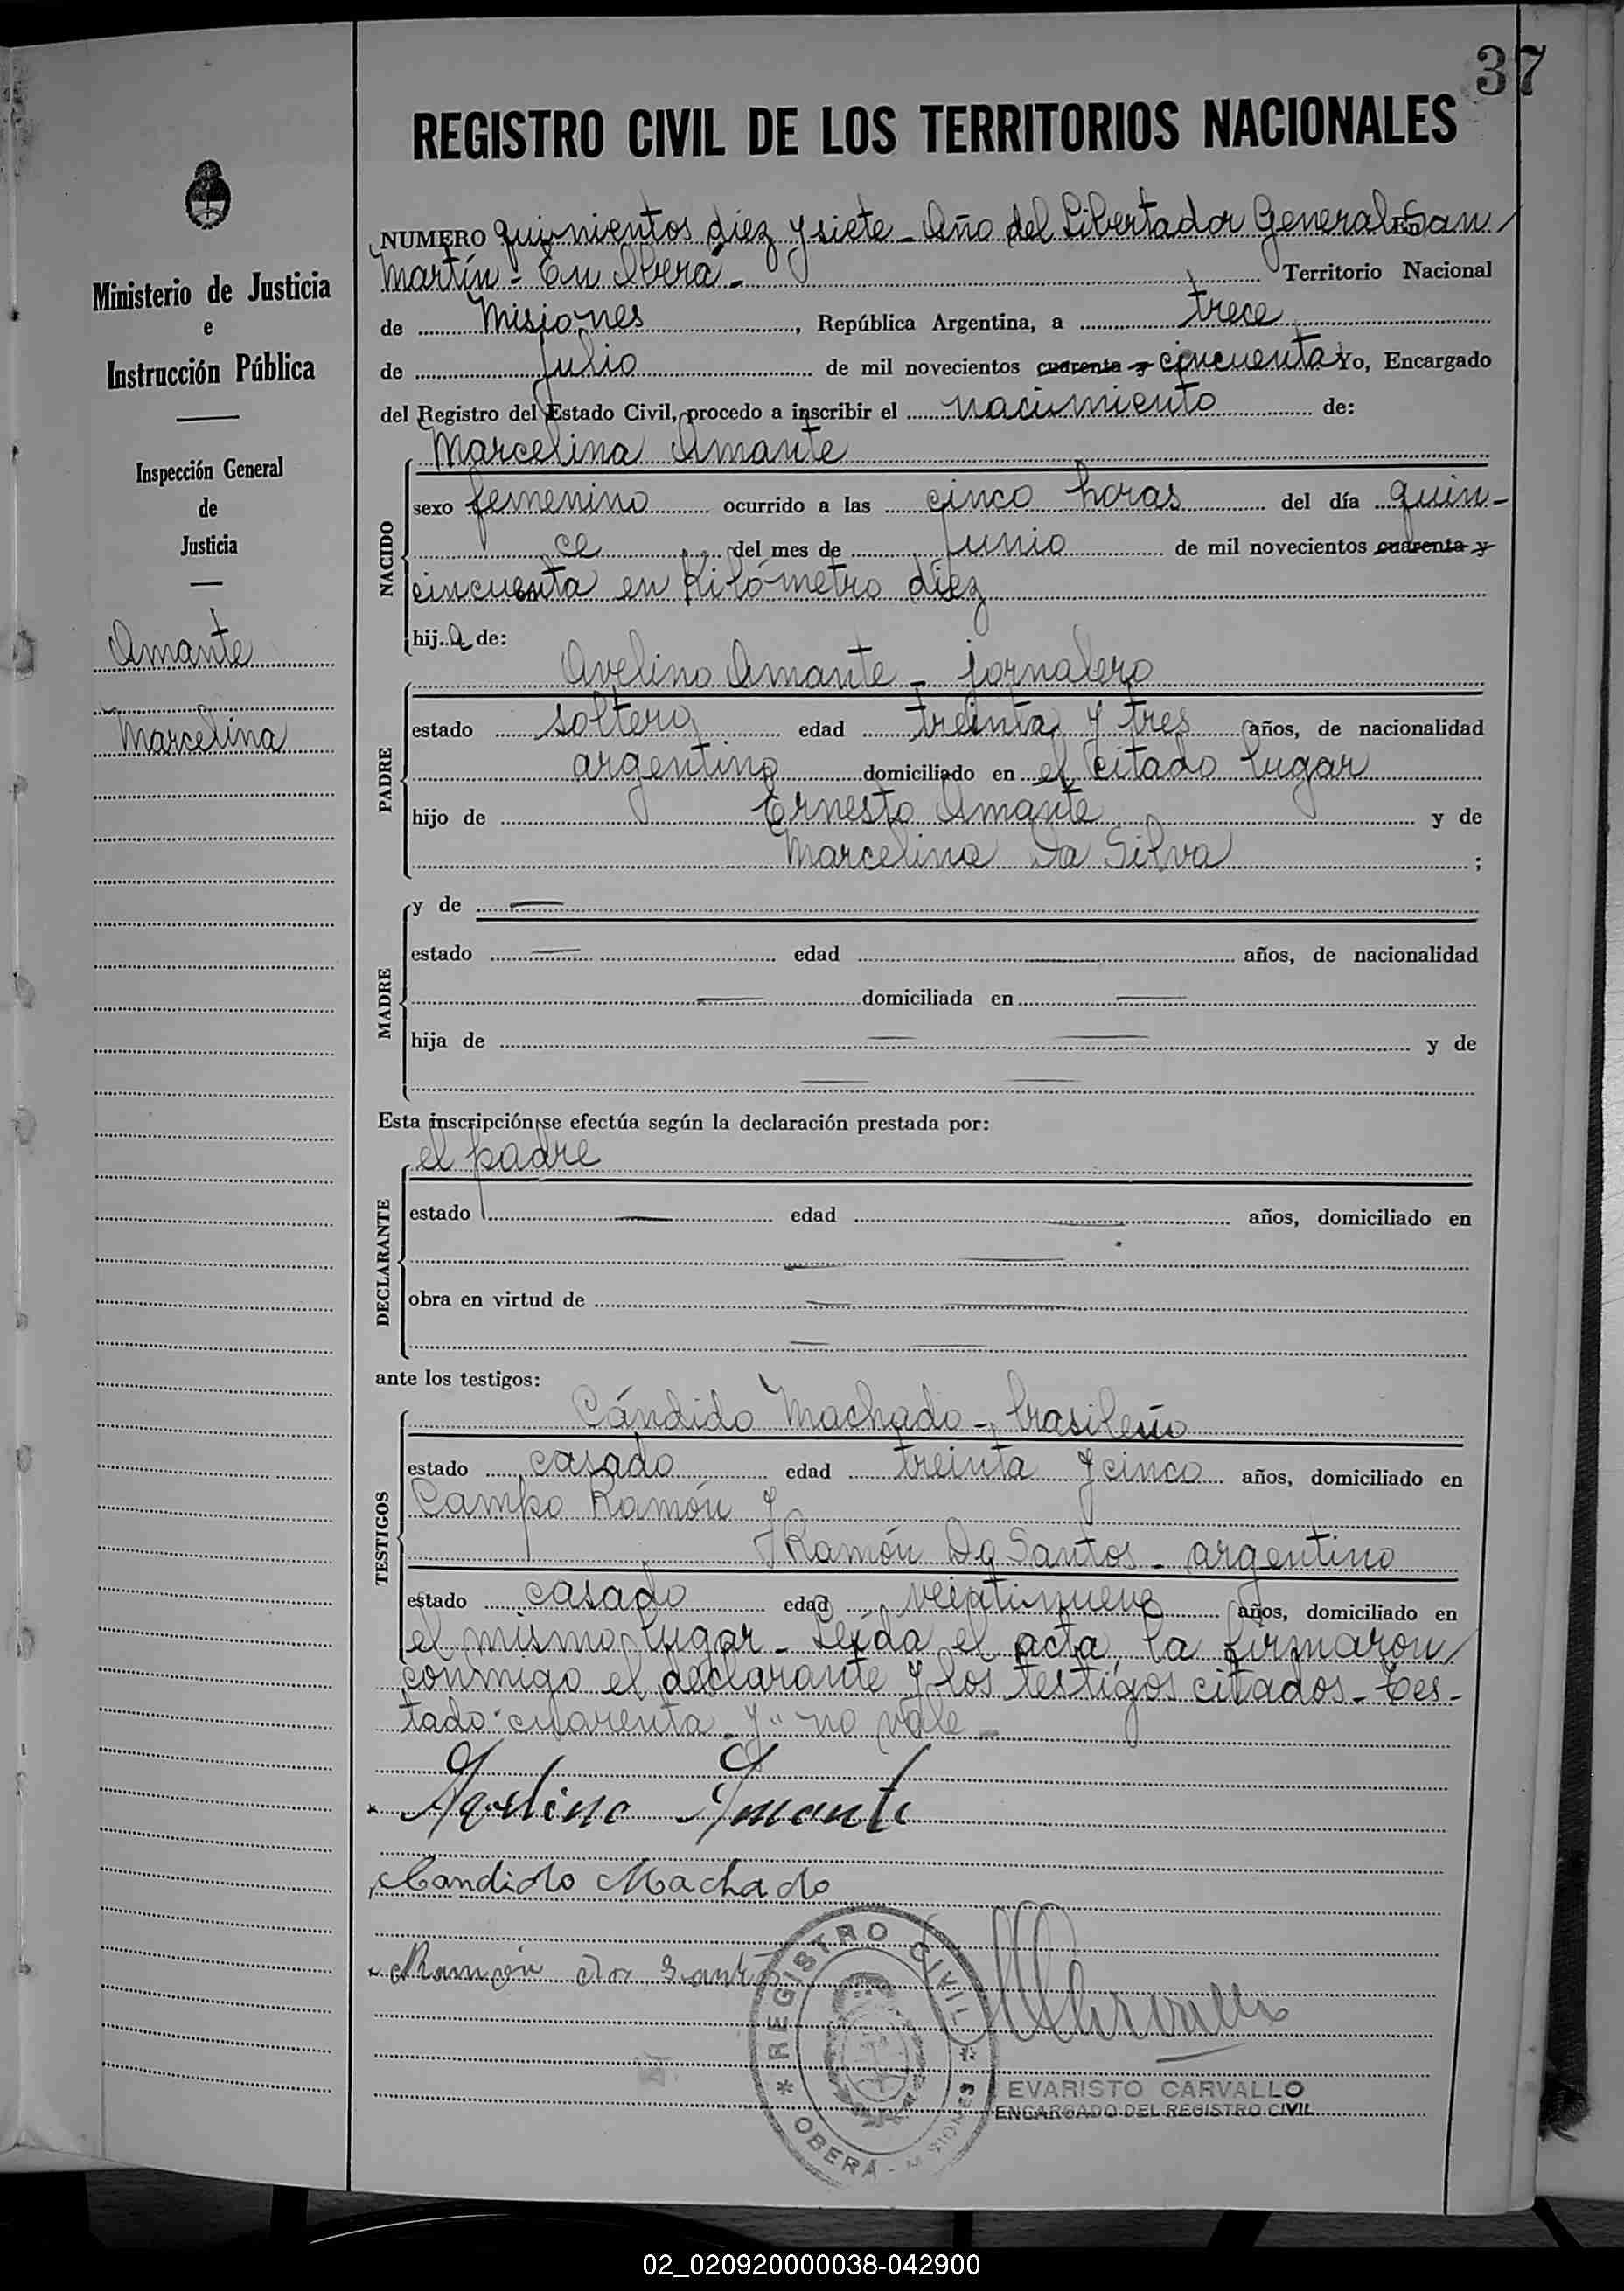 37
REGISTRO CIVIL DE LOS TERRITORIOS NACIONALES
NUMERO quinientos diez y siete - Año del Libertador General San
Martín - En Oberá - Territorio Nacional
de Misiones, República Argentina, a trece
de Julio de mil novecientos cuarenta y cincuenta Yo, Encargado
del Registro del Estado Civil, procedo a inscribir el nacimiento de:
Marcelina Amante
NACIDO
sexo femenino ocurrido a las cinco horas del día quin-
ce del mes de Junio de mil novecientos cuarenta y
cincuenta en Kilómetro diez
hija de:
Avelino Amante - jornalero
PADRE
estado soltero edad treinta y tres años, de nacionalidad
argentino domiciliado en el citado lugar
hijo de Ernesto Amante y de
Marcelina Da Silva ;
MADRE
y de —
estado — edad — años, de nacionalidad
— domiciliada en —
hija de — — y de
— —
Esta inscripción se efectúa según la declaración prestada por:
el padre
DECLARANTE
estado — edad — años, domiciliado en
— —
obra en virtud de — —
— —
ante los testigos:
Cándido Machado - brasileño
TESTIGOS
estado casado edad treinta y cinco años, domiciliado en
Campo Ramón y
Ramón Da Santos - argentino
estado casado edad veintinueve años, domiciliado en
el mismo lugar - Leída el acta, la firmaron
conmigo el declarante y los testigos citados - Tes-
tado "cuarenta y" no vale -
Avelino Amante
Candido Machado
Ramón
Carvallo
REGISTRO CIVIL
OBERÁ - MISIONES
EVARISTO CARVALLO
ENCARGADO DEL REGISTRO CIVIL
Ministerio de Justicia
e
Instrucción Pública
Inspección General
de
Justicia
Amante
Marcelina
02_020920000038-042900